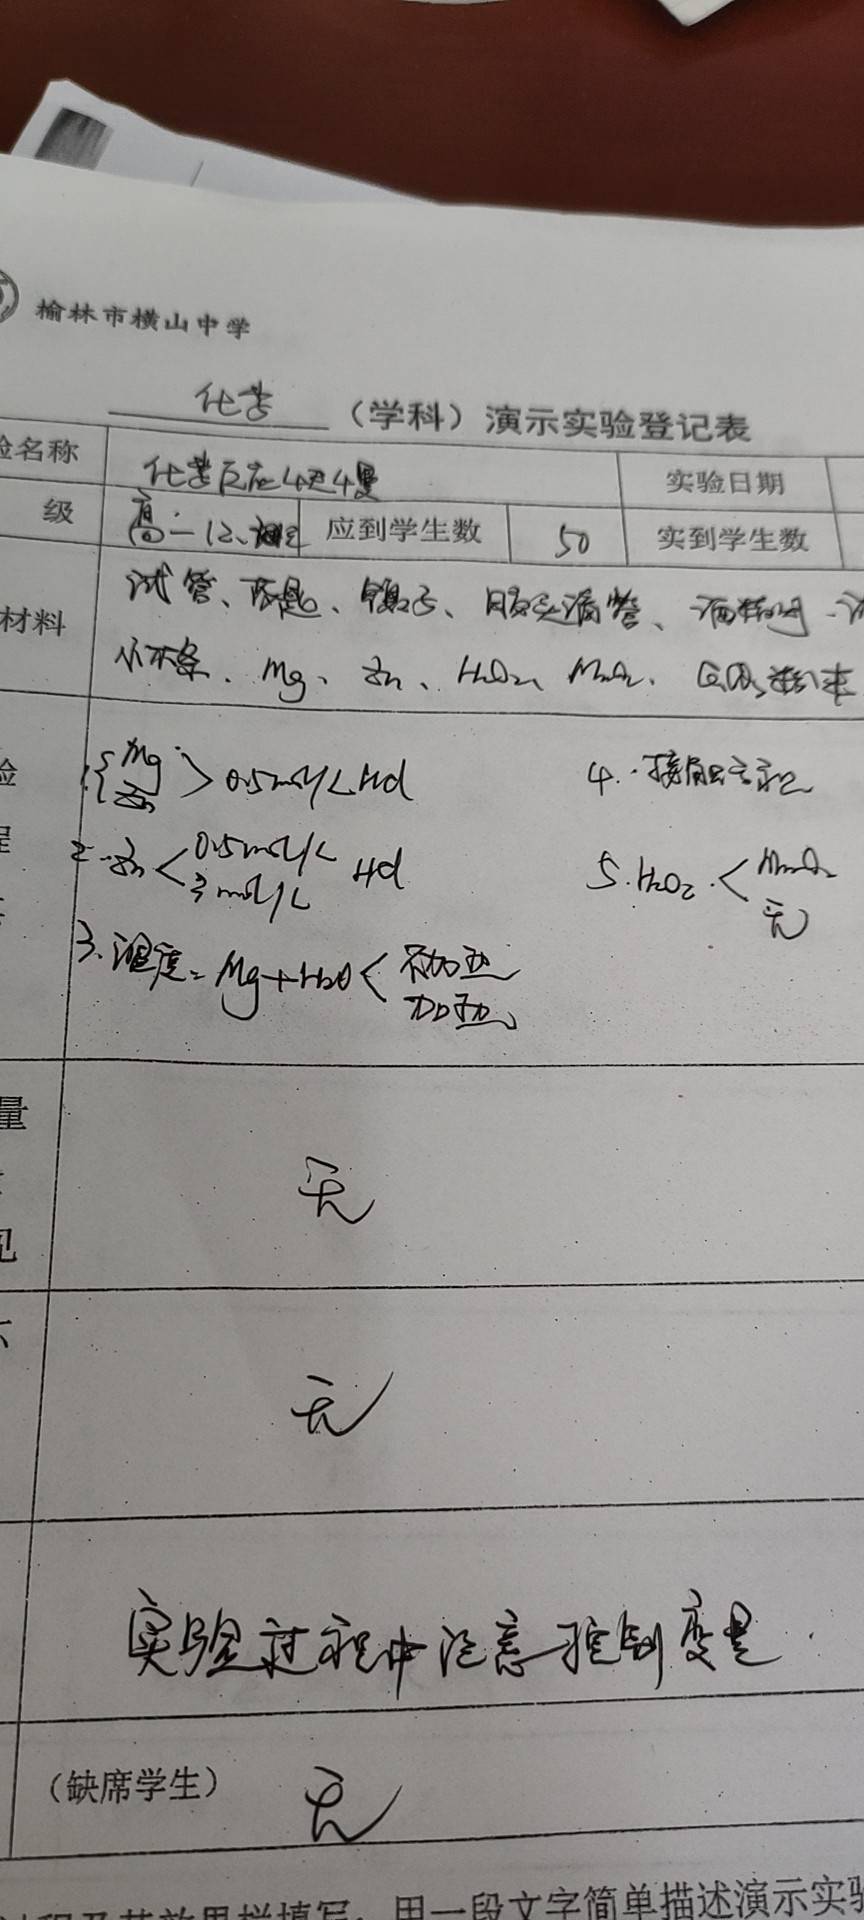 榆林市横山中学
化学（学科）演示实验登记表
验名称 化学反应的快慢 实验日期
级 高一12、 应到学生数 50 实到学生数
材料 试管、药匙、镊子、胶头滴管、酒精灯、试
小木条、Mg、Zn、H₂O₂、MnO₂、CaCO₃粉末
验
程
1.{Mg Zn > 0.5mol/L HCl
2. Zn < 0.5mol/L 3mol/L HCl
3.温度: Mg+H₂O < 不加热 加热
4. 接触面积
5. H₂O₂ < MnO₂ 无
量
见
无
无
实验过程中注意控制变量.
（缺席学生） 无
程及其效果栏填写，用一段文字简单描述演示实验